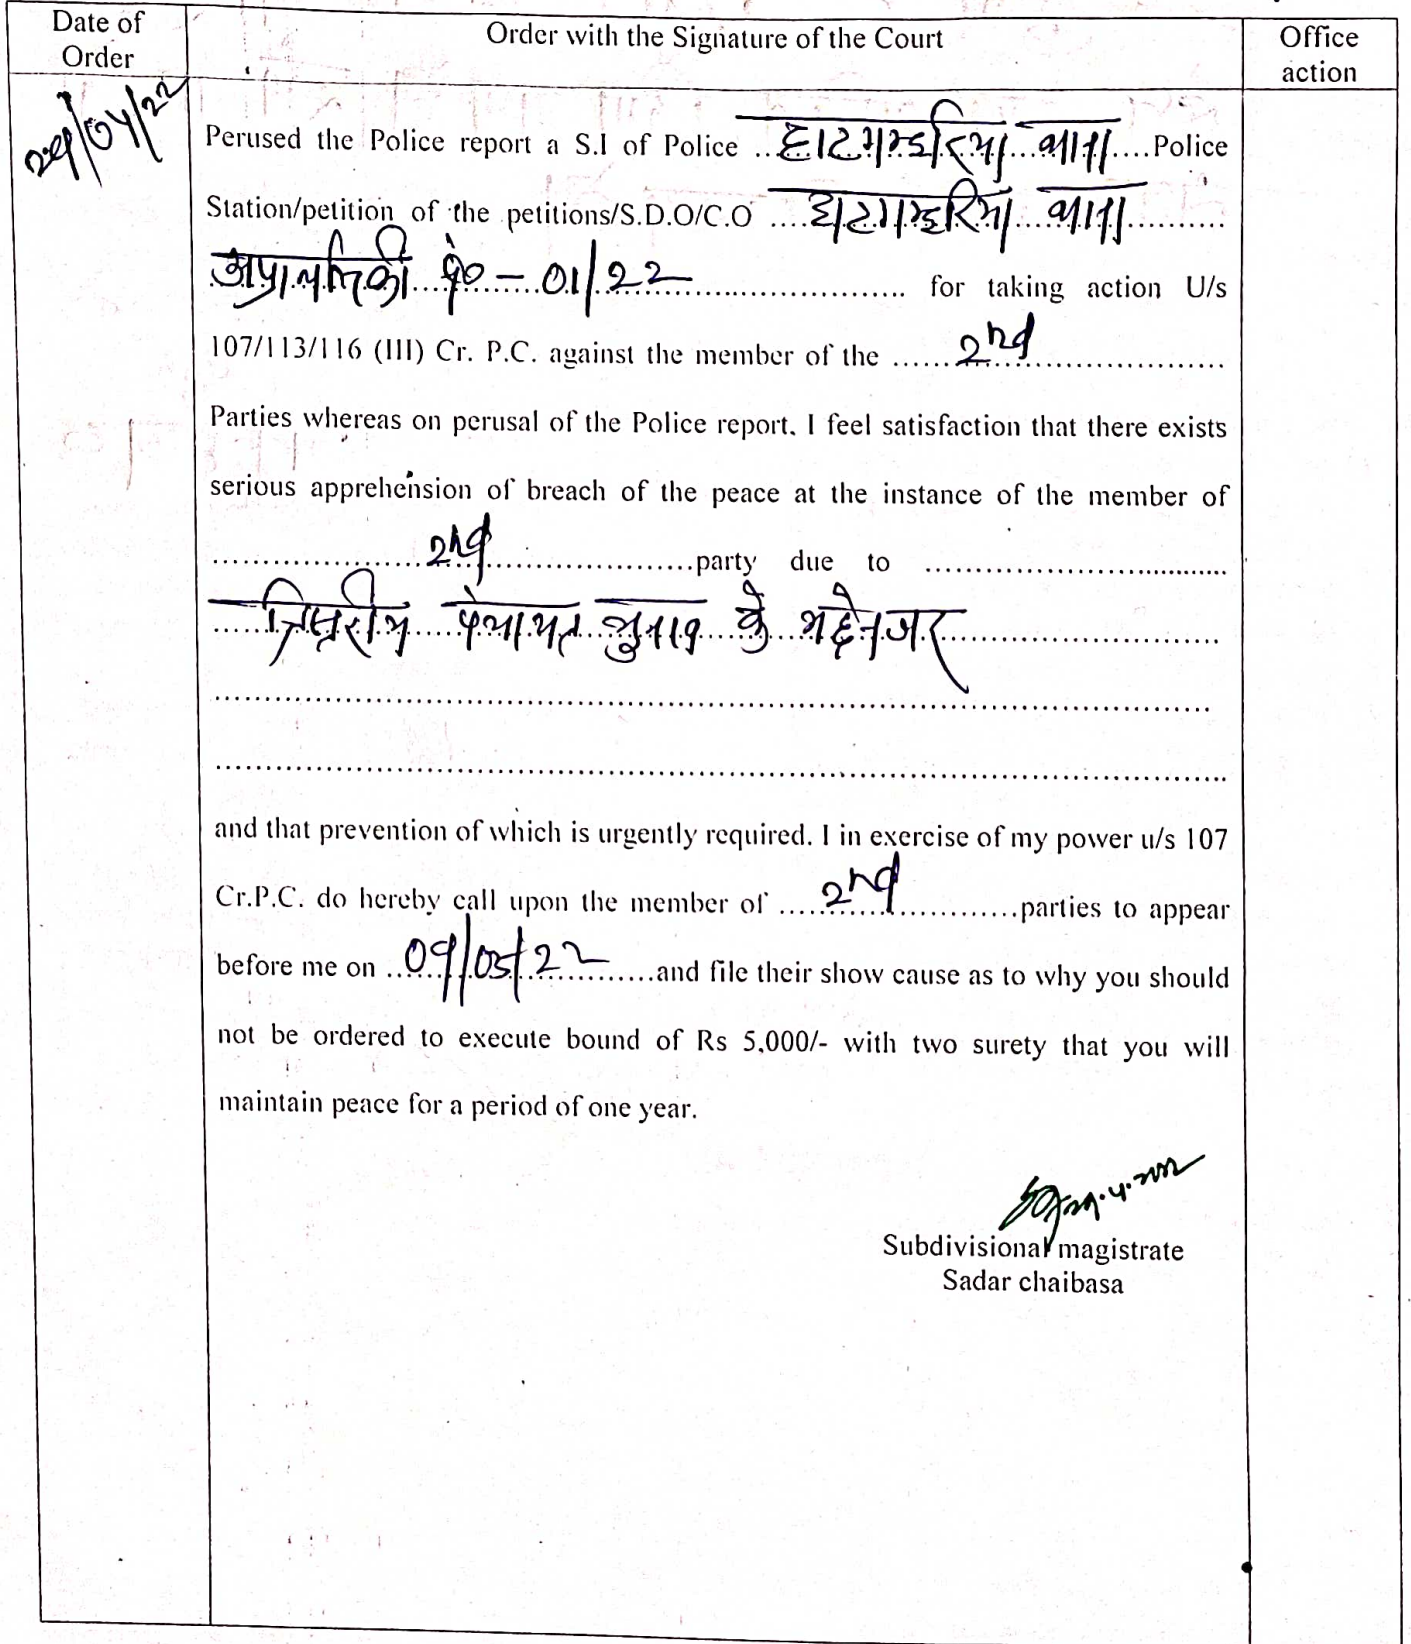 Date of Order
Order with the Signature of the Court
Office action
29/04/22
Perused the Police report a S.I of Police ..हाटगम्हरिया थाना....Police
Station/petition of the petitions/S.D.O/C.O ....हाटगम्हरिया थाना..........
अप्राथमिकी सं०-01/22........................ for taking action U/s
107/113/116 (III) Cr. P.C. against the member of the ......2nd....................
Parties whereas on perusal of the Police report. I feel satisfaction that there exists
serious apprehension of breach of the peace at the instance of the member of
.....................2nd.....................party due to ..............................
....त्रिस्तरीय पंचायत चुनाव के मद्देनजर............................
and that prevention of which is urgently required. I in exercise of my power u/s 107
Cr.P.C. do hereby call upon the member of ....2nd............parties to appear
before me on ..09/05/22......and file their show cause as to why you should
not be ordered to execute bound of Rs 5,000/- with two surety that you will
maintain peace for a period of one year.
Subdivisional magistrate
Sadar chaibasa